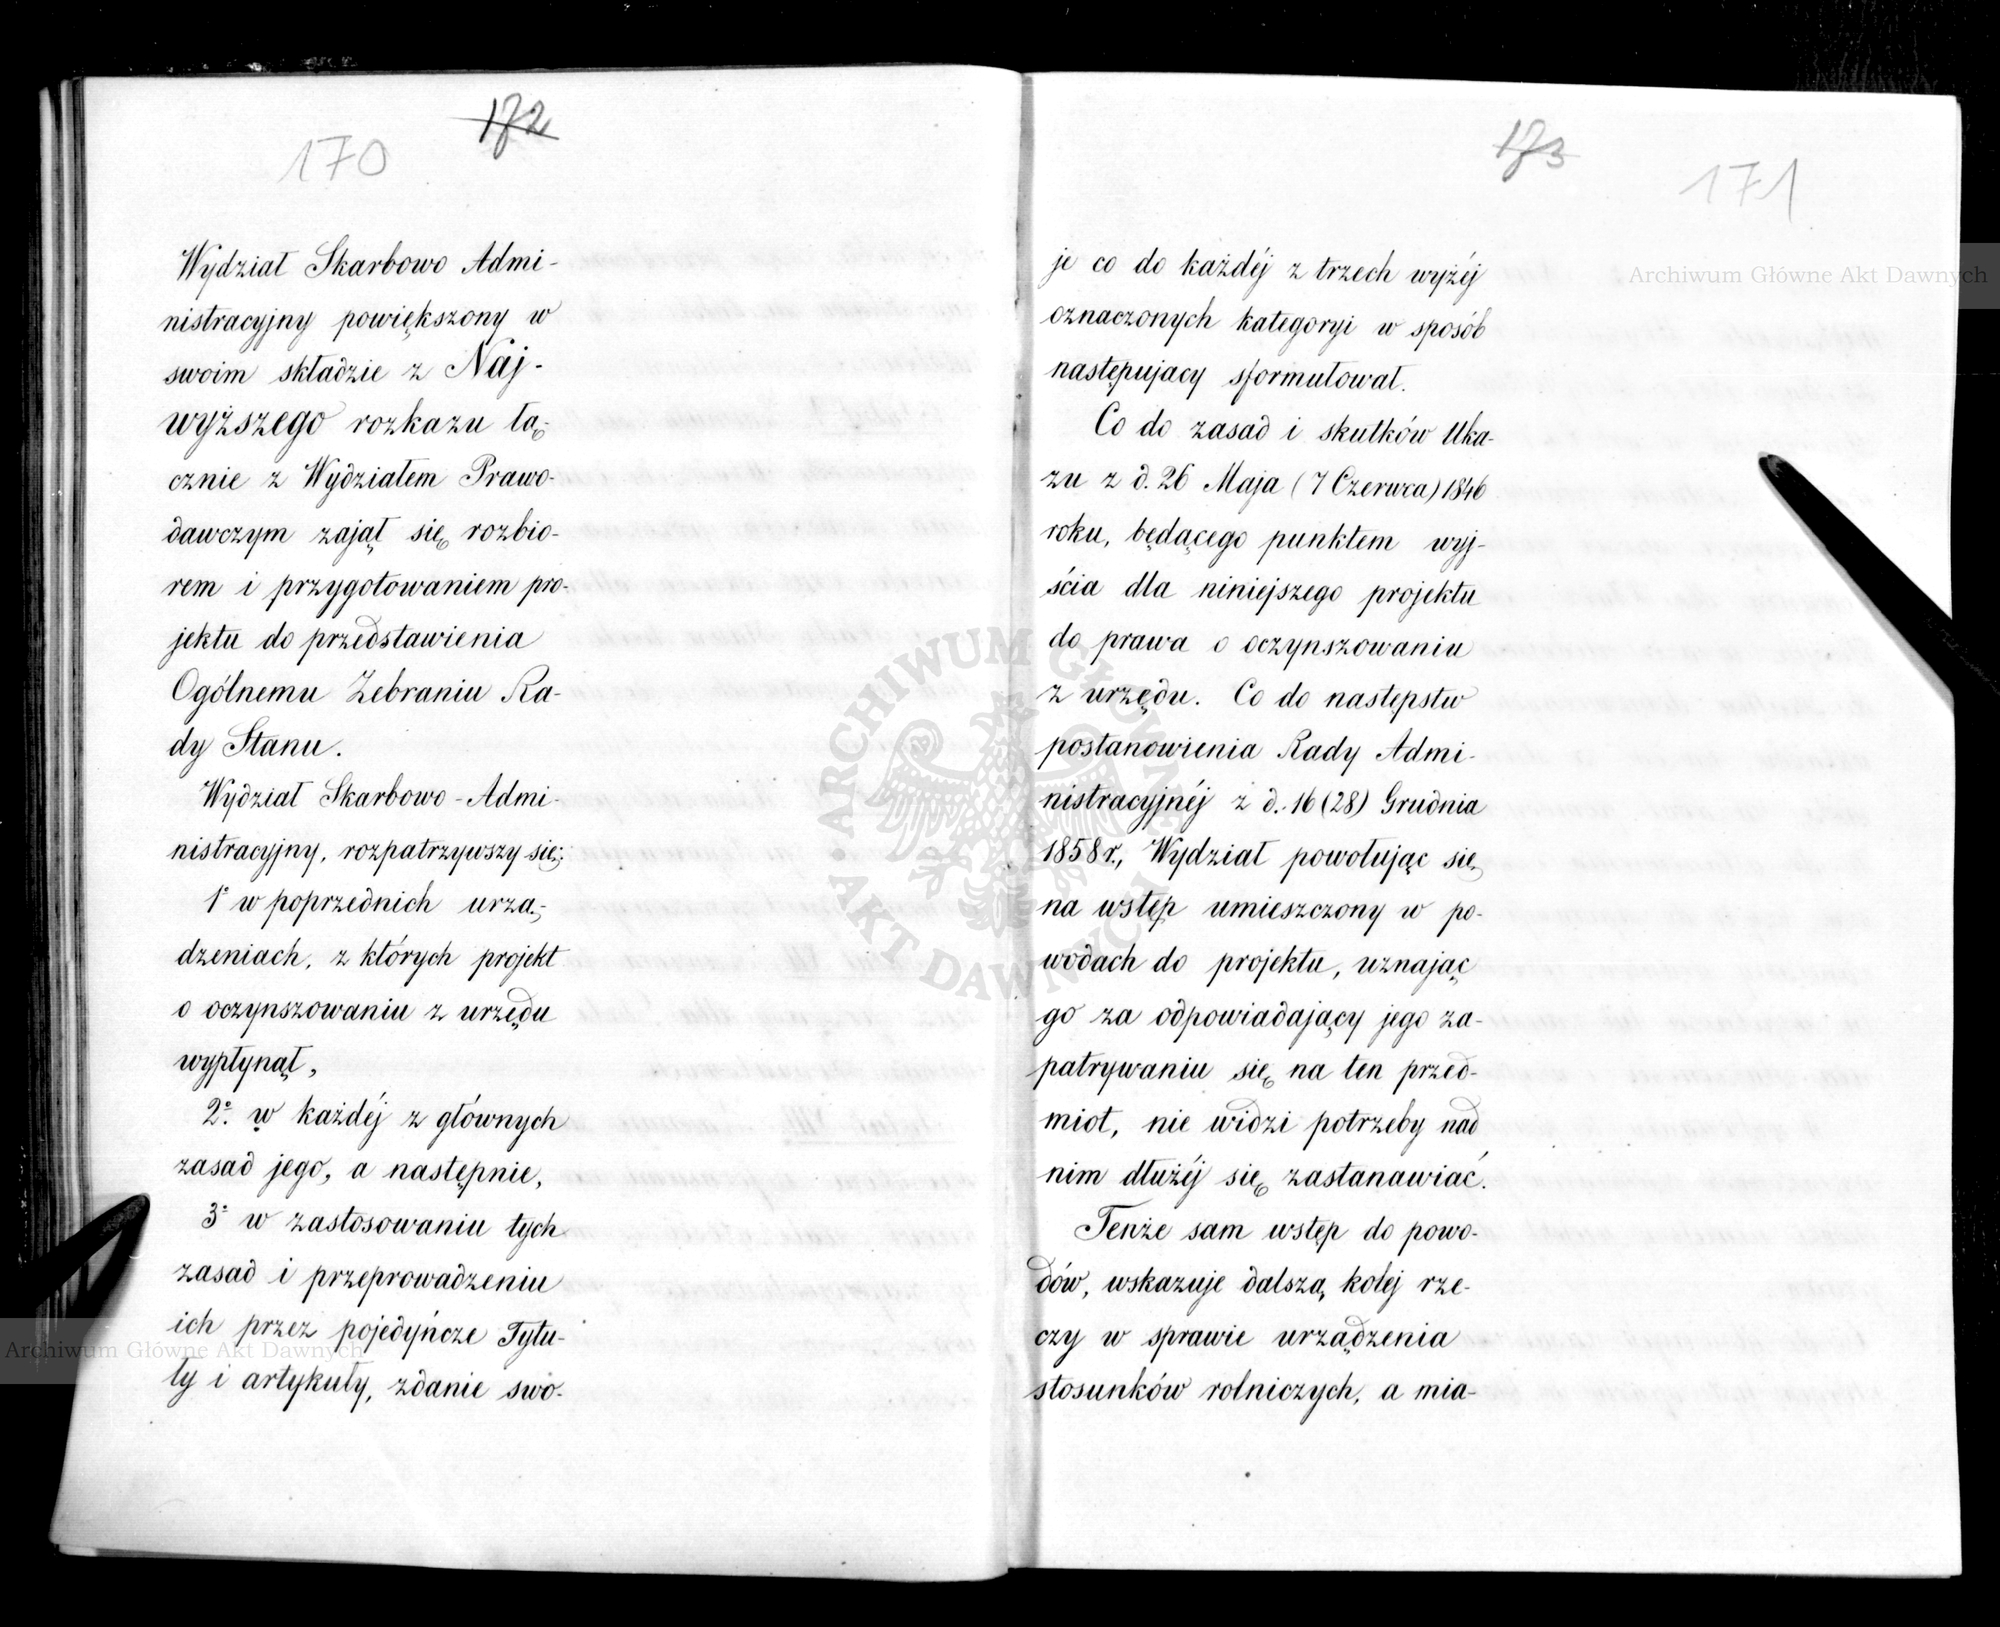 170
172
Wydział Skarbowo Admi-
nistracyjny powiększony w
swoim składzie z Naj-
wyższego rozkazu łą-
cznie z Wydziałem Prawo-
dawczym zajął się rozbio-
rem i przygotowaniem pro-
jektu do przedstawienia
Ogólnemu Zebraniu Ra-
dy Stanu.
Wydział Skarbowo-Admi-
nistracyjny, rozpatrzywszy się:
1º w poprzednich urzą-
dzeniach, z których projekt
o oczynszowaniu z urzędu
wypłynął,
2º w każdéj z głównych
zasad jego, a następnie,
3º w zastosowaniu tych
zasad i przeprowadzeniu
ich przez pojedyńcze Tytu-
ły i artykuły, zdanie swo-
173
171
je co do każdéj z trzech wyżéj
oznaczonych kategoryi w sposób
następujacy sformułował.
Co do zasad i skutków Uka-
zu z d. 26 Maja (7 Czerwca) 1846
roku, będącego punktem wyj-
ścia dla niniejszego projektu
do prawa o oczynszowaniu
z urzędu. Co do następstw
postanowienia Rady Admi-
nistracyjnéj z d. 16 (28) Grudnia
1858 r., Wydział powołując się
na wstęp umieszczony w po-
wodach do projektu, uznając
go za odpowiadający jego za-
patrywaniu się na ten przed-
miot, nie widzi potrzeby nad
nim dłużéj się zastanawiać.
Tenże sam wstęp do powo-
dów, wskazuje dalszą kolej rze-
czy w sprawie urządzenia
stosunków rolniczych, a mia-
Archiwum Główne Akt Dawnych
Archiwum Główne Akt Dawnych
ARCHIWUM GŁÓWNE AKT DAWNYCH